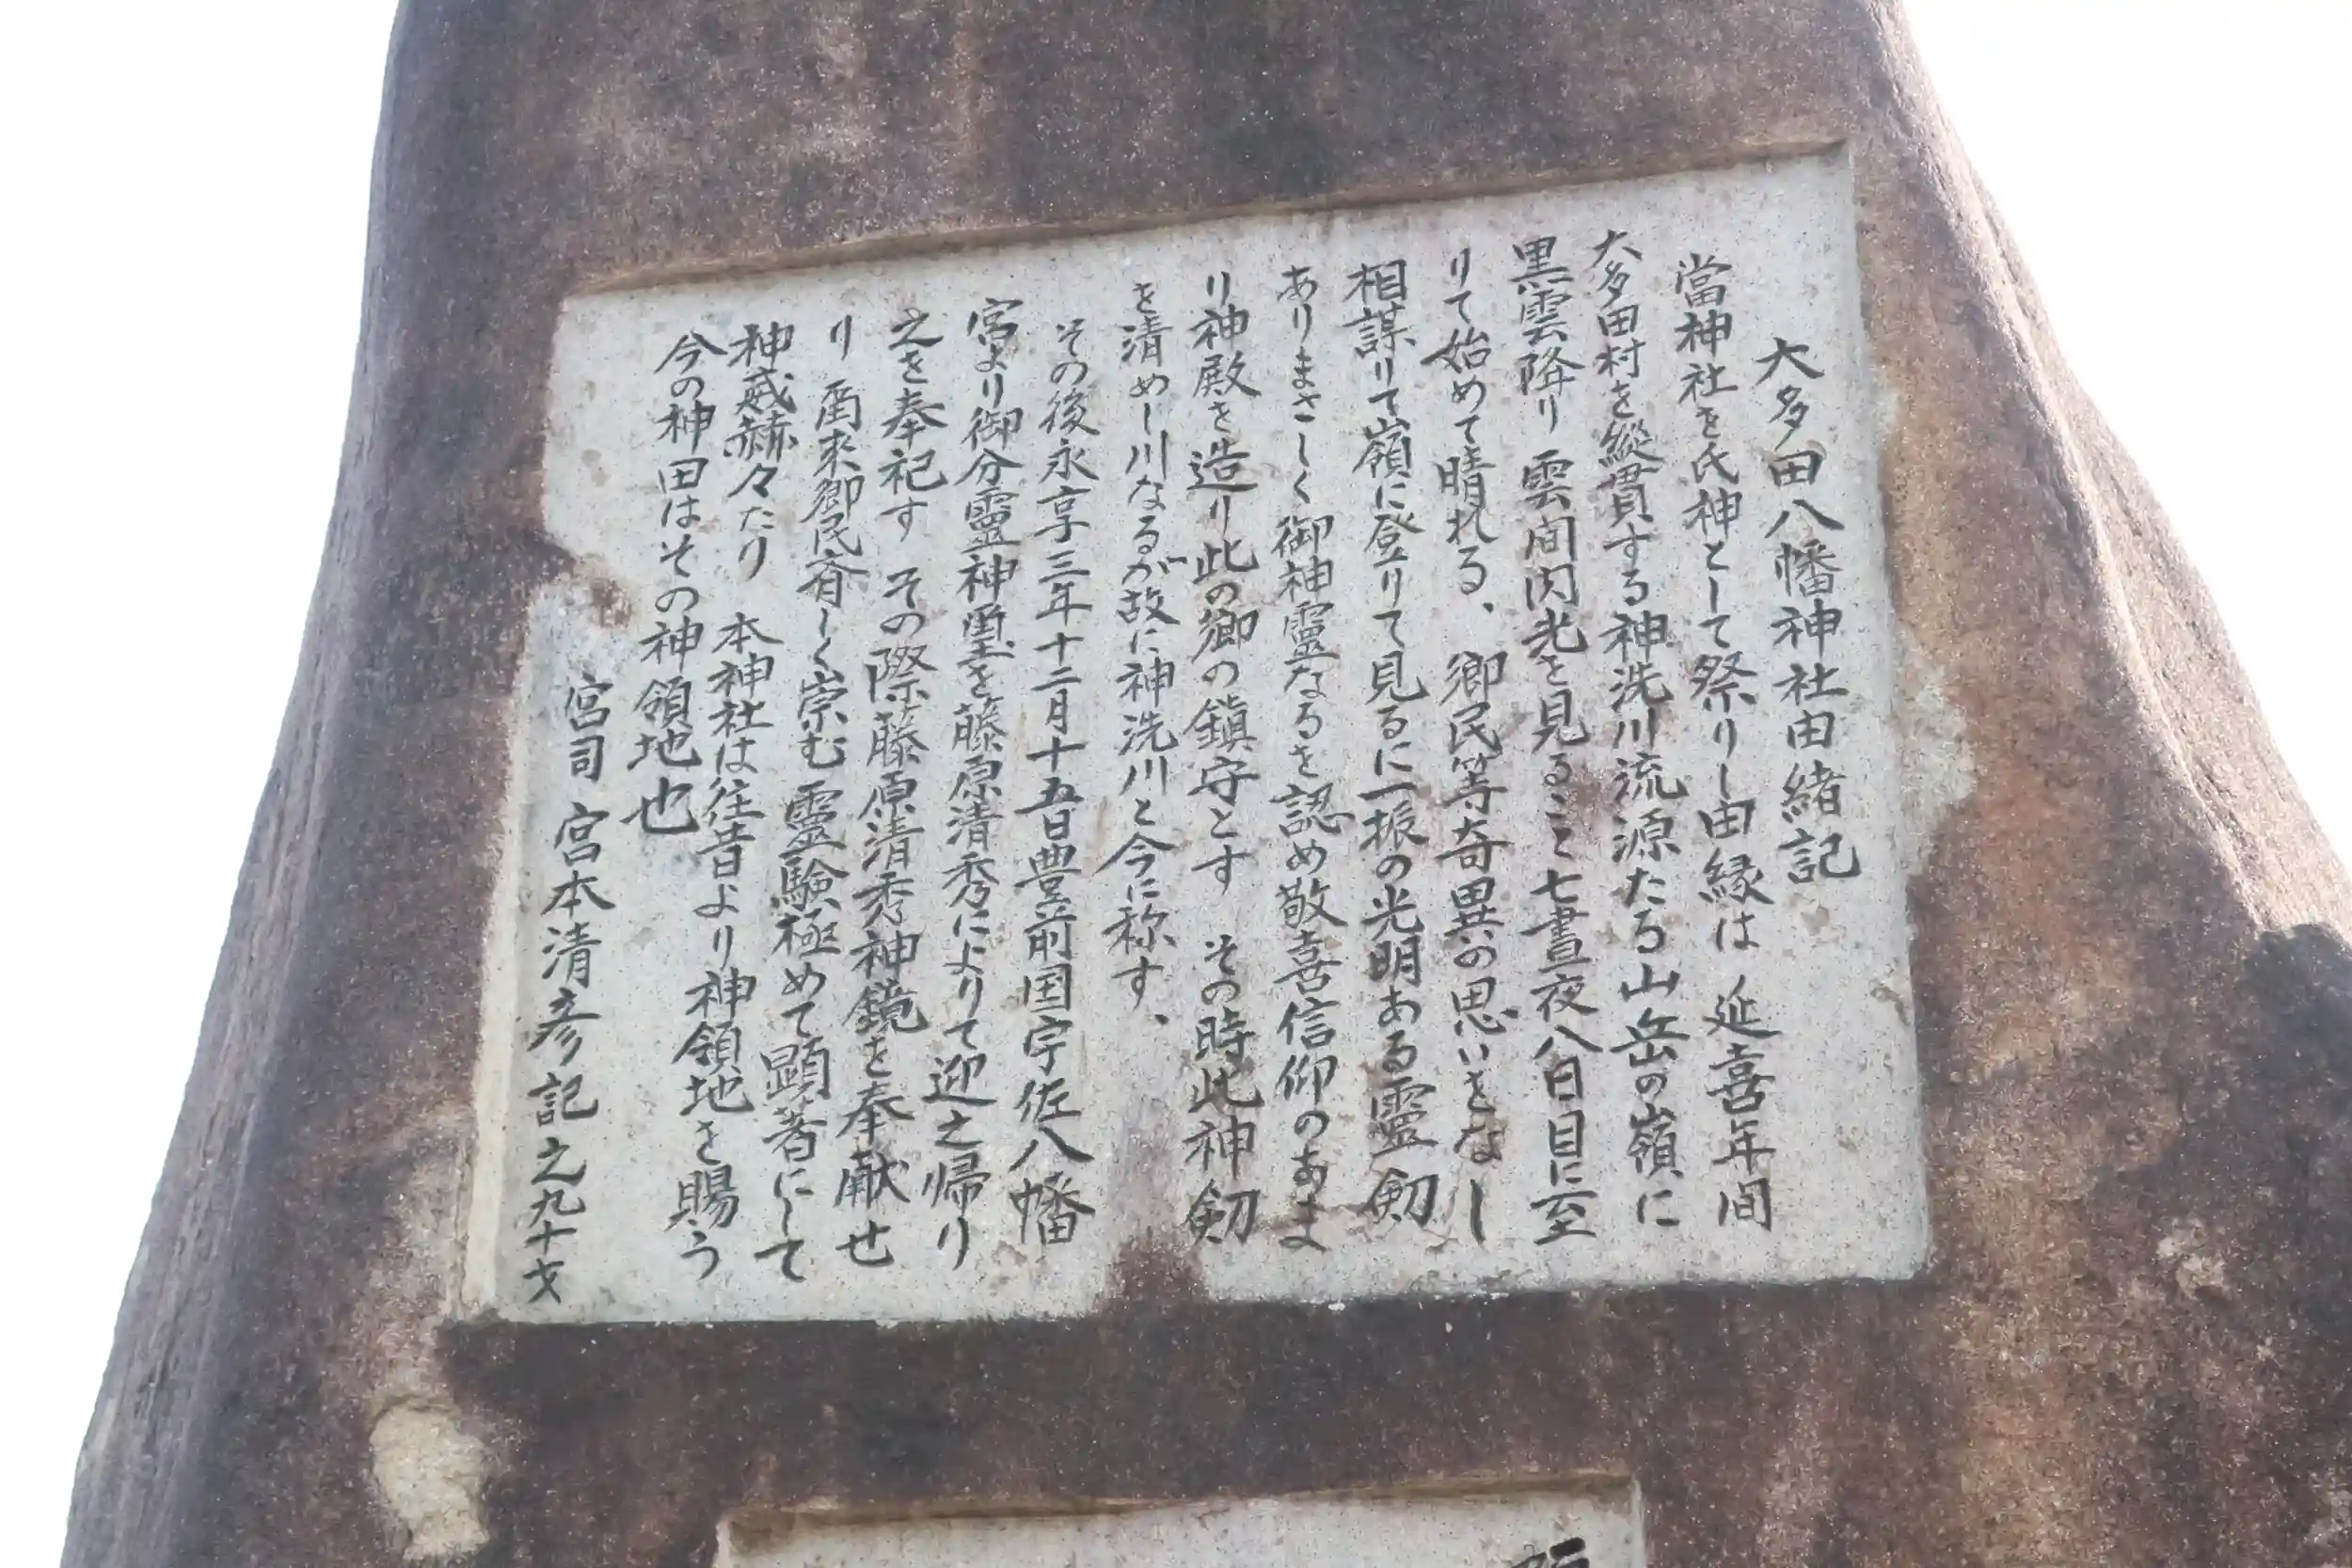 大多田八幡神社由緒記
當神社を氏神として祭りし由縁は 延喜年間
大多田村を縦貫する神洗川流源たる山岳の嶺に
黒雲降り雲間閃光を見ること七晝夜八日目に至
りて始めて晴れる、郷民等奇異の思いをなし
相謀りて嶺に登りて見るに一振の光明ある霊剱
ありまさしく御神霊なるを認め敬喜信仰のあま
り神殿を造り此の郷の鎮守とす その時此神剱
を清めし川なるが故に神洗川と今に称す、
その後永享三年十二月十五日豊前国宇佐八幡
宮より御分霊神璽を藤原清秀によりて迎之帰り
之を奉祀す その際藤原清秀神鏡を奉献せ
り 爾来郷民斉しく崇む霊験極めて顕著にして
神威赫々たり 本神社は往昔より神領地を賜う
今の神田はその神領地也
宮司 宮本清彦 記之九十才